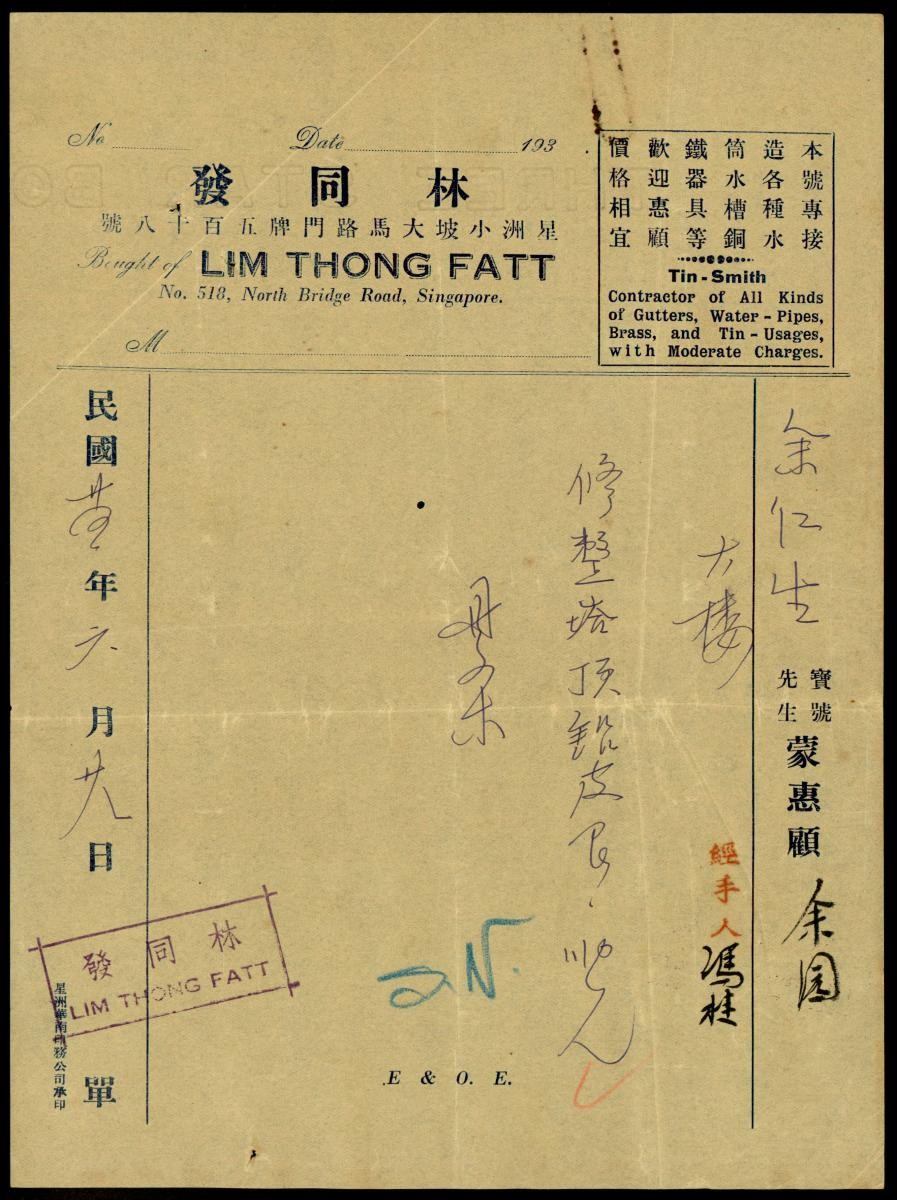 No Date 193
林同發
星洲小坡大馬路門牌五百十八號
Bought of LIM THONG FATT
No. 518, North Bridge Road, Singapore.
M
本號專接
造各種水
筒水槽銅
鐵器具等
歡迎惠顧
價格相宜
Tin-Smith
Contractor of All Kinds
of Gutters, Water-Pipes,
Brass, and Tin-Usages,
with Moderate Charges.
余仁生 寶號 先生 蒙惠顧 余園
大楼
經手人 馮桂
修整塔頂鉛皮
E & O. E.
民國 年 六 月 廿八 日 單
林同發
LIM THONG FATT
星洲華南印務公司承印